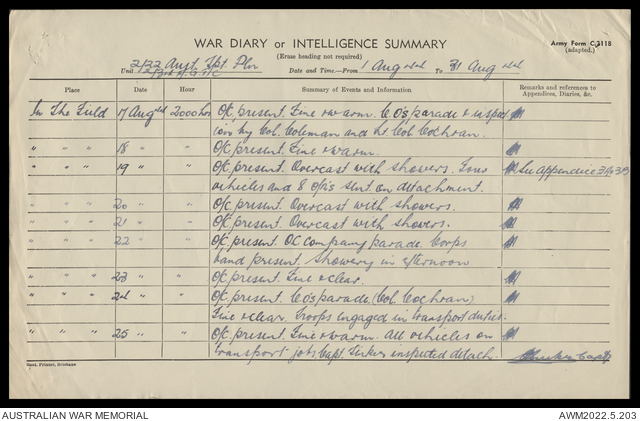 WAR DIARY or INTELLIGENCE SUMMARY
(Erase heading not required)
Army Form C.2118
(adapted.)
Unit 2/22 Aust. Tpt. Pln
Date and Time—From 1 Aug To 31 Aug
Place Date Hour Summary of Events and Information Remarks and references to Appendices, Diaries, &c.
In The Field 17 Aug 2000 hrs O/C present. Fine & warm. CO's parade & inspect
ion by Col. Coleman and Lt Col. Cochran.
" " " 18 " " O/C present. Fine & warm.
" " " 19 " " O/C present. Overcast with showers. Four See Appendice
vehicles and 8 O/R's sent on detachment.
" " " 20 " " O/C present. Overcast with showers.
" " " 21 " " O/C present. Overcast with showers.
" " " 22 " " O/C present. OC company parade. Corps
band present. Showery in afternoon
" " " 23 " " O/C present. Fine & clear.
" " " 24 " " O/C present. CO's parade (Col. Cochran)
Fine & clear. Troops engaged in transport duties.
" " " 25 " " O/C present. Fine & warm. All vehicles on
transport jobs. Capt. inspected detach. Capt
Govt. Printer, Brisbane
AUSTRALIAN WAR MEMORIAL
AWM2022.5.203